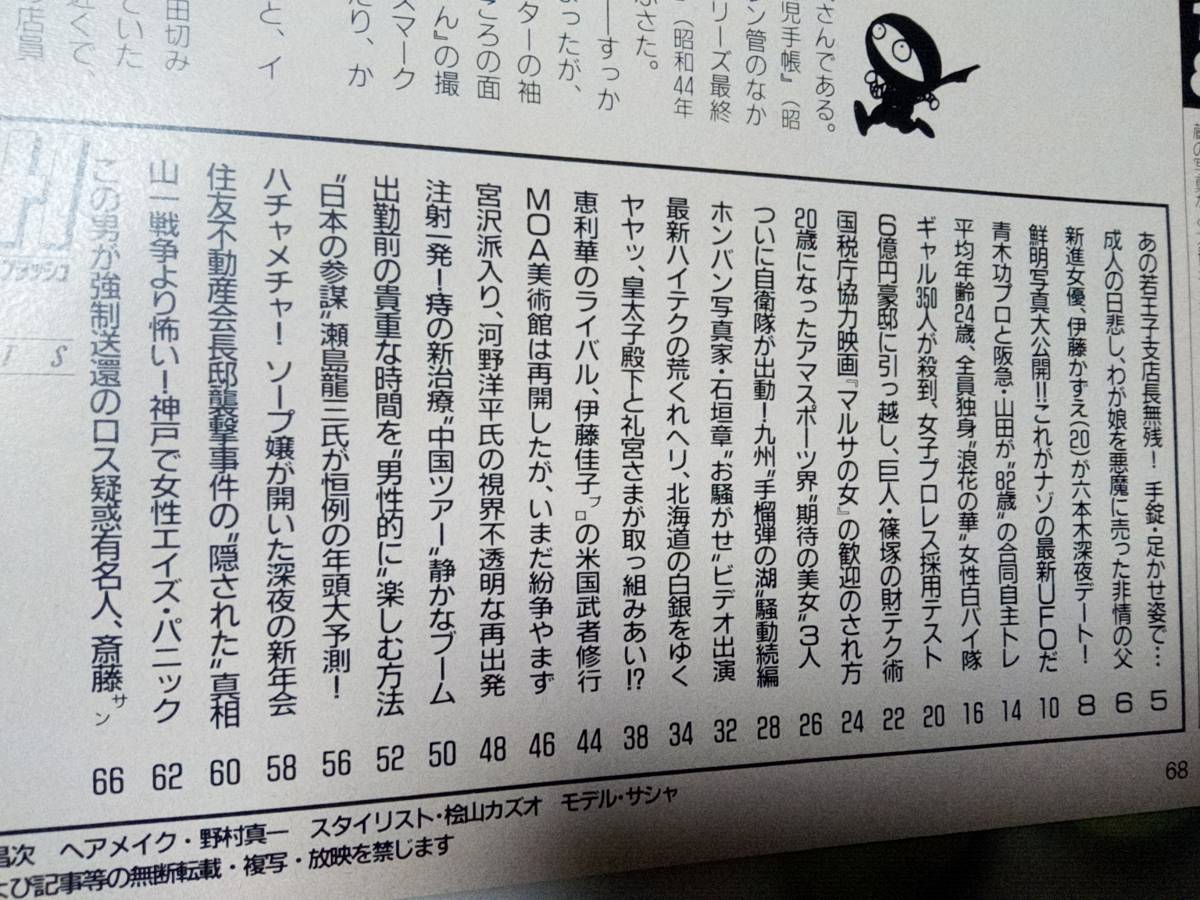 さんである。
児手帳』（昭
ン管のなか
リーズ最終
（昭和44年
ぶさた。
――すっか
まったが、
ターの袖
ころの面
ん』の撮
スマーク
たり、か
と、イ
田切み
ていた
近くて、
の店員
あの若王子支店長無残！　手錠・足かせ姿で… 5
成人の日悲し、わが娘を悪魔に売った非情の父 6
新進女優、伊藤かずえ（20）が六本木深夜デート！ 8
鮮明写真大公開!!これがナゾの最新UFOだ 10
青木功プロと阪急・山田が“82歳”の合同自主トレ 14
平均年齢24歳、全員独身“浪花の華”女性白バイ隊 16
ギャル350人が殺到、女子プロレス採用テスト 20
6億円豪邸に引っ越し、巨人・篠塚の財テク術 22
国税庁協力映画『マルサの女』の歓迎のされ方 24
20歳になったアマスポーツ界“期待の美女”3人 26
ついに自衛隊が出動！九州“手榴弾の湖”騒動続編 28
ホンバン写真家・石垣章“お騒がせ”ビデオ出演 32
最新ハイテクの荒くれヘリ、北海道の白銀をゆく 34
ヤヤッ、皇太子殿下と礼宮さまが取っ組みあい!? 38
恵利華のライバル、伊藤佳子プロの米国武者修行 44
MOA美術館は再開したが、いまだ紛争やまず 46
宮沢派入り、河野洋平氏の視界不透明な再出発 48
注射一発！痔の新治療“中国ツアー”静かなブーム 50
出勤前の貴重な時間を“男性的に”楽しむ方法 52
“日本の参謀”瀬島龍三氏が恒例の年頭大予測！ 56
ハチャメチャ！ソープ嬢が開いた深夜の新年会 58
住友不動産会長邸襲撃事件の“隠された”真相 60
山一戦争より怖い！神戸で女性エイズ・パニック 62
この男が強制送還のロス疑惑有名人、斎藤サン 66
フラッシュ
T S
68
昌次　ヘアメイク・野村真一　スタイリスト・桧山カズオ　モデル・サシャ
よび記事等の無断転載・複写・放映を禁じます